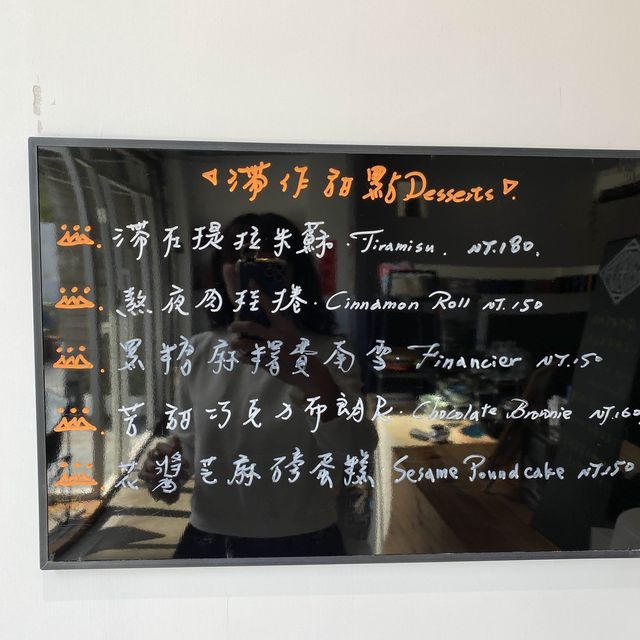 滯作甜點Desserts
滯石提拉朱蘇·Tiramisu. NT.180.
熬夜肉桂捲·Cinnamon Roll NT.150
黑糖麻糬費南雪·Financier NT.50
苦甜巧克力布朗尼·Chocolate Brownie NT.60
花醬芝麻磅蛋糕·Sesame Poundcake NT.150